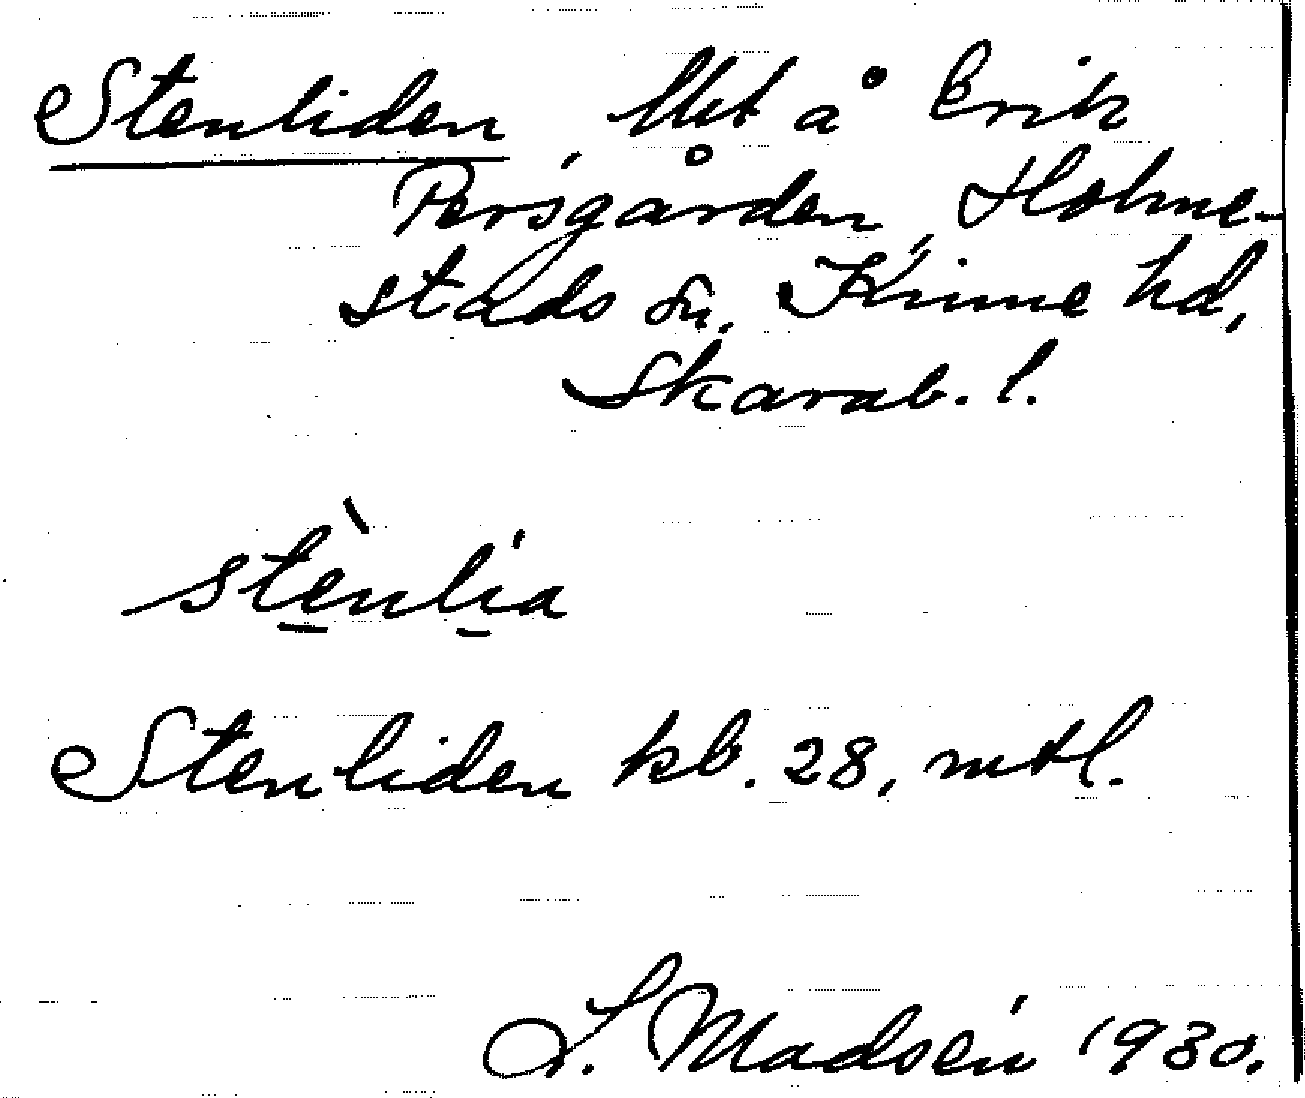 Stenliden, lht å Erik
Persgården, Holme-
stads sn, Kinne hd,
Skarab. l.
stènlía
Stenliden kb. 28, mtl.
I. Madsén 1930.